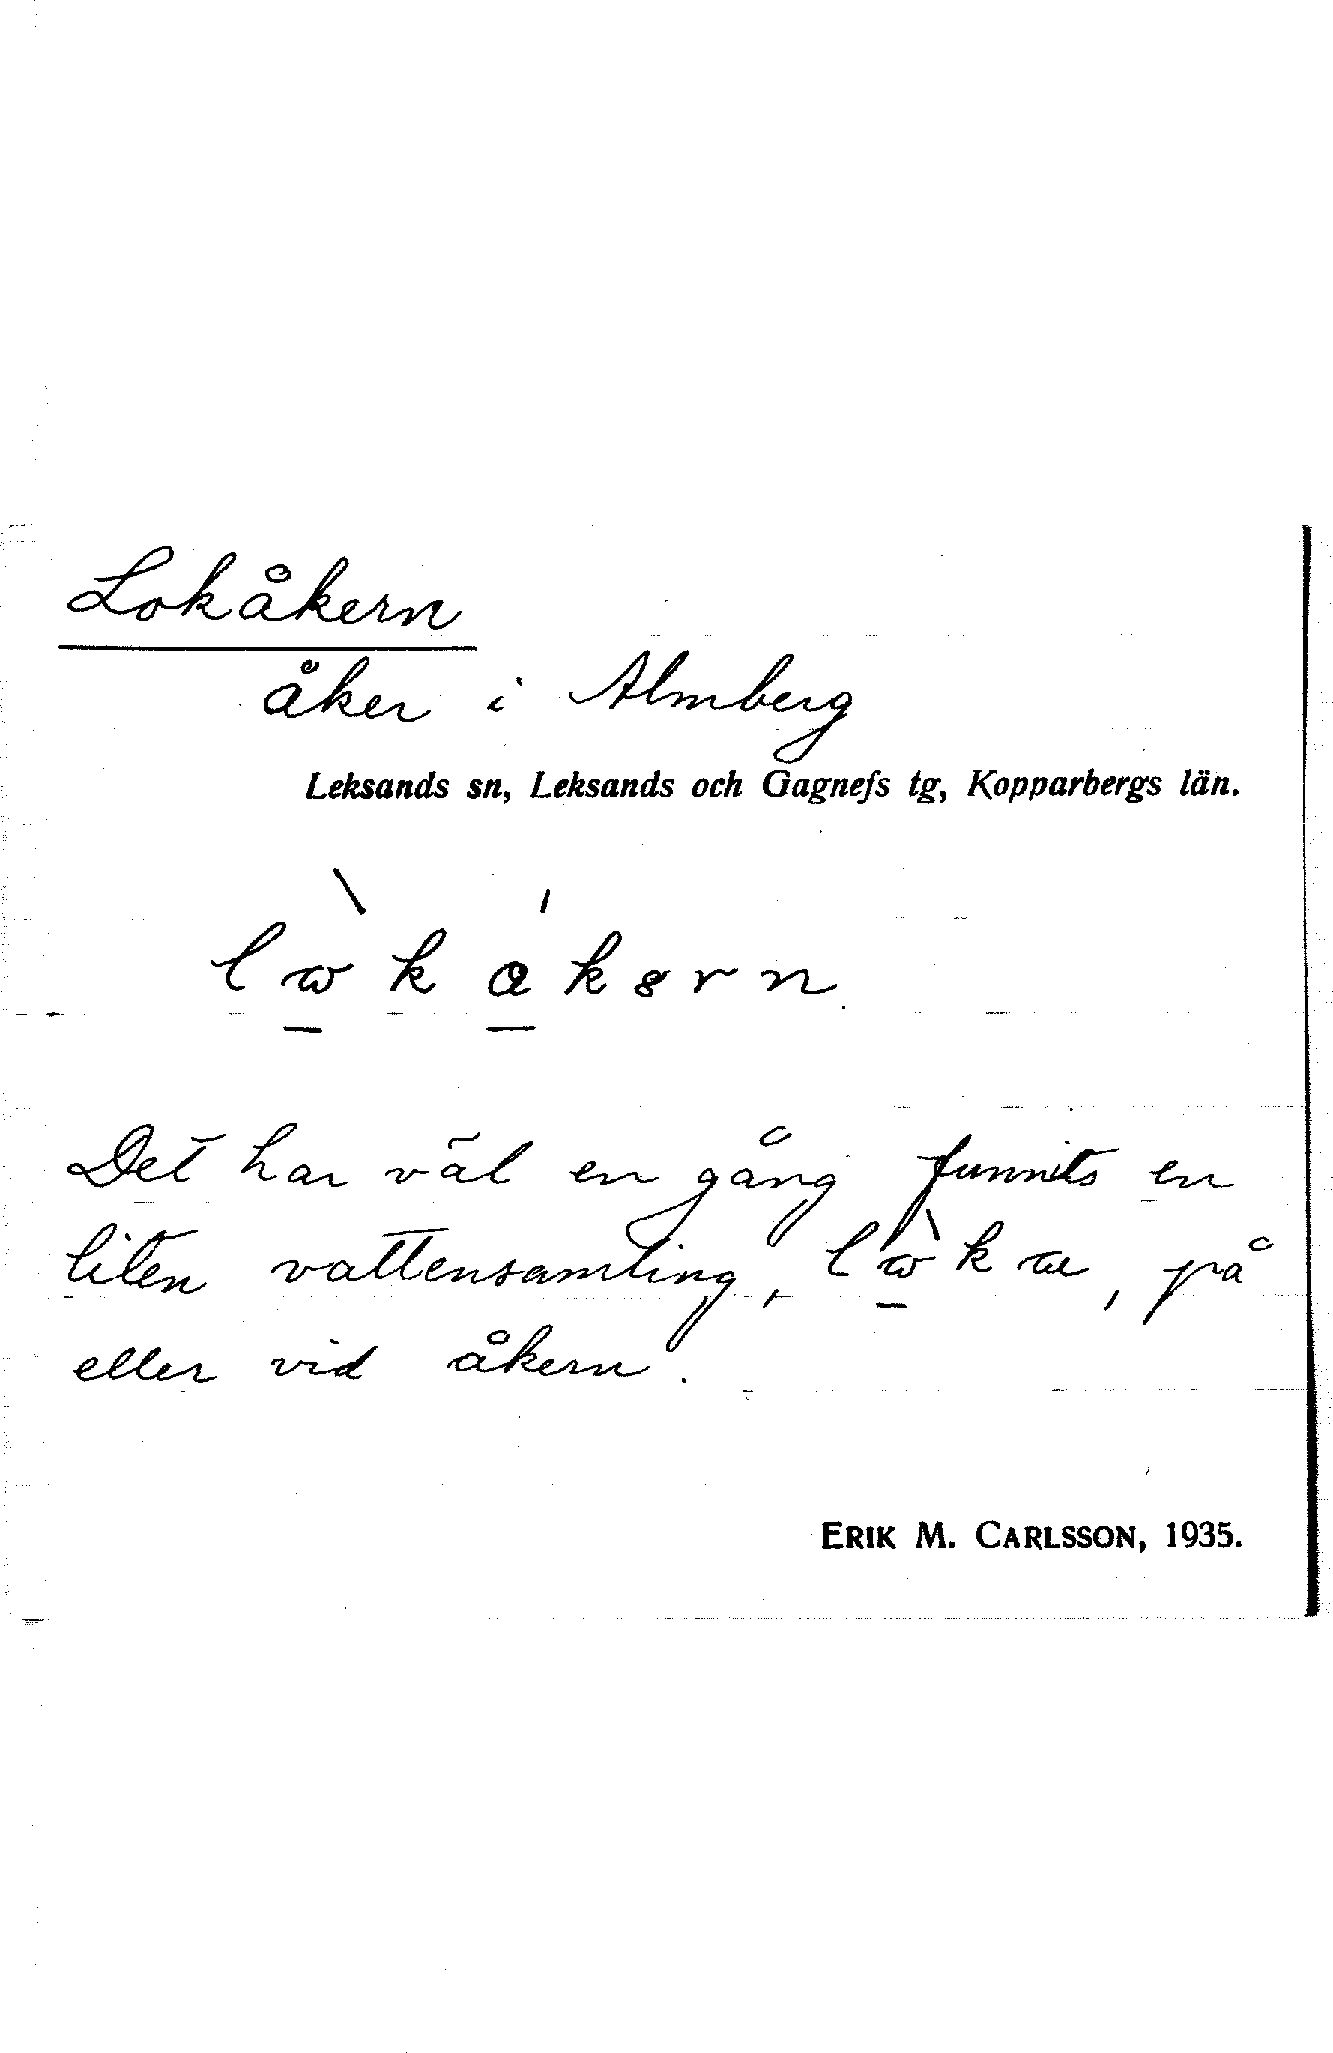 Lokåkern
åker i Almberg
Leksands sn, Leksands och Gagnefs tg, Kopparbergs län.
Det har väl en gång funnits en
liten vattensamling, på
eller vid åkern.
ERIK M. CARLSSON, 1935.